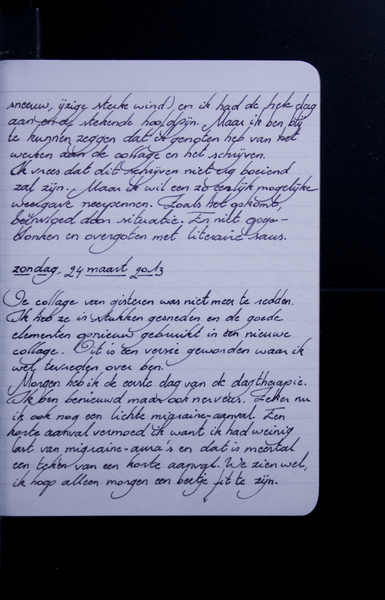 sneeuw, ijzige sterke wind!) en ik had de hele dag
aan en de stekende hoofdpijn. Maar ik ben blij
te kunnen zeggen dat ik genoten heb van het
werken aan de collage en het schrijven.
Ik vrees dat dit schrijven niet erg boeiend
zal zijn. Maar ik wil een zo eerlijk mogelijke
weergave neerpennen. Zoals het opkomt,
beïnvloed door situatie. En niet opge-
blonken en overgoten met literaire saus.
zondag, 24 maart 2013
De collage van gisteren was niet meer te redden.
Ik heb ze in stukken gesneden en de goede
elementen opnieuw gebruikt in een nieuwe
collage. Dit is een versie geworden waar ik
wel tevreden over ben.
Morgen heb ik de eerste dag van de dagtherapie.
Ik ben benieuwd maar ook nerveus. Zeker nu
ik ook nog een lichte migraine-aanval. Een
korte aanval vermoed ik want ik had weinig
last van migraine-aura's en dat is meestal
een teken van een korte aanval. We zien wel,
ik hoop alleen morgen een beetje fit te zijn.